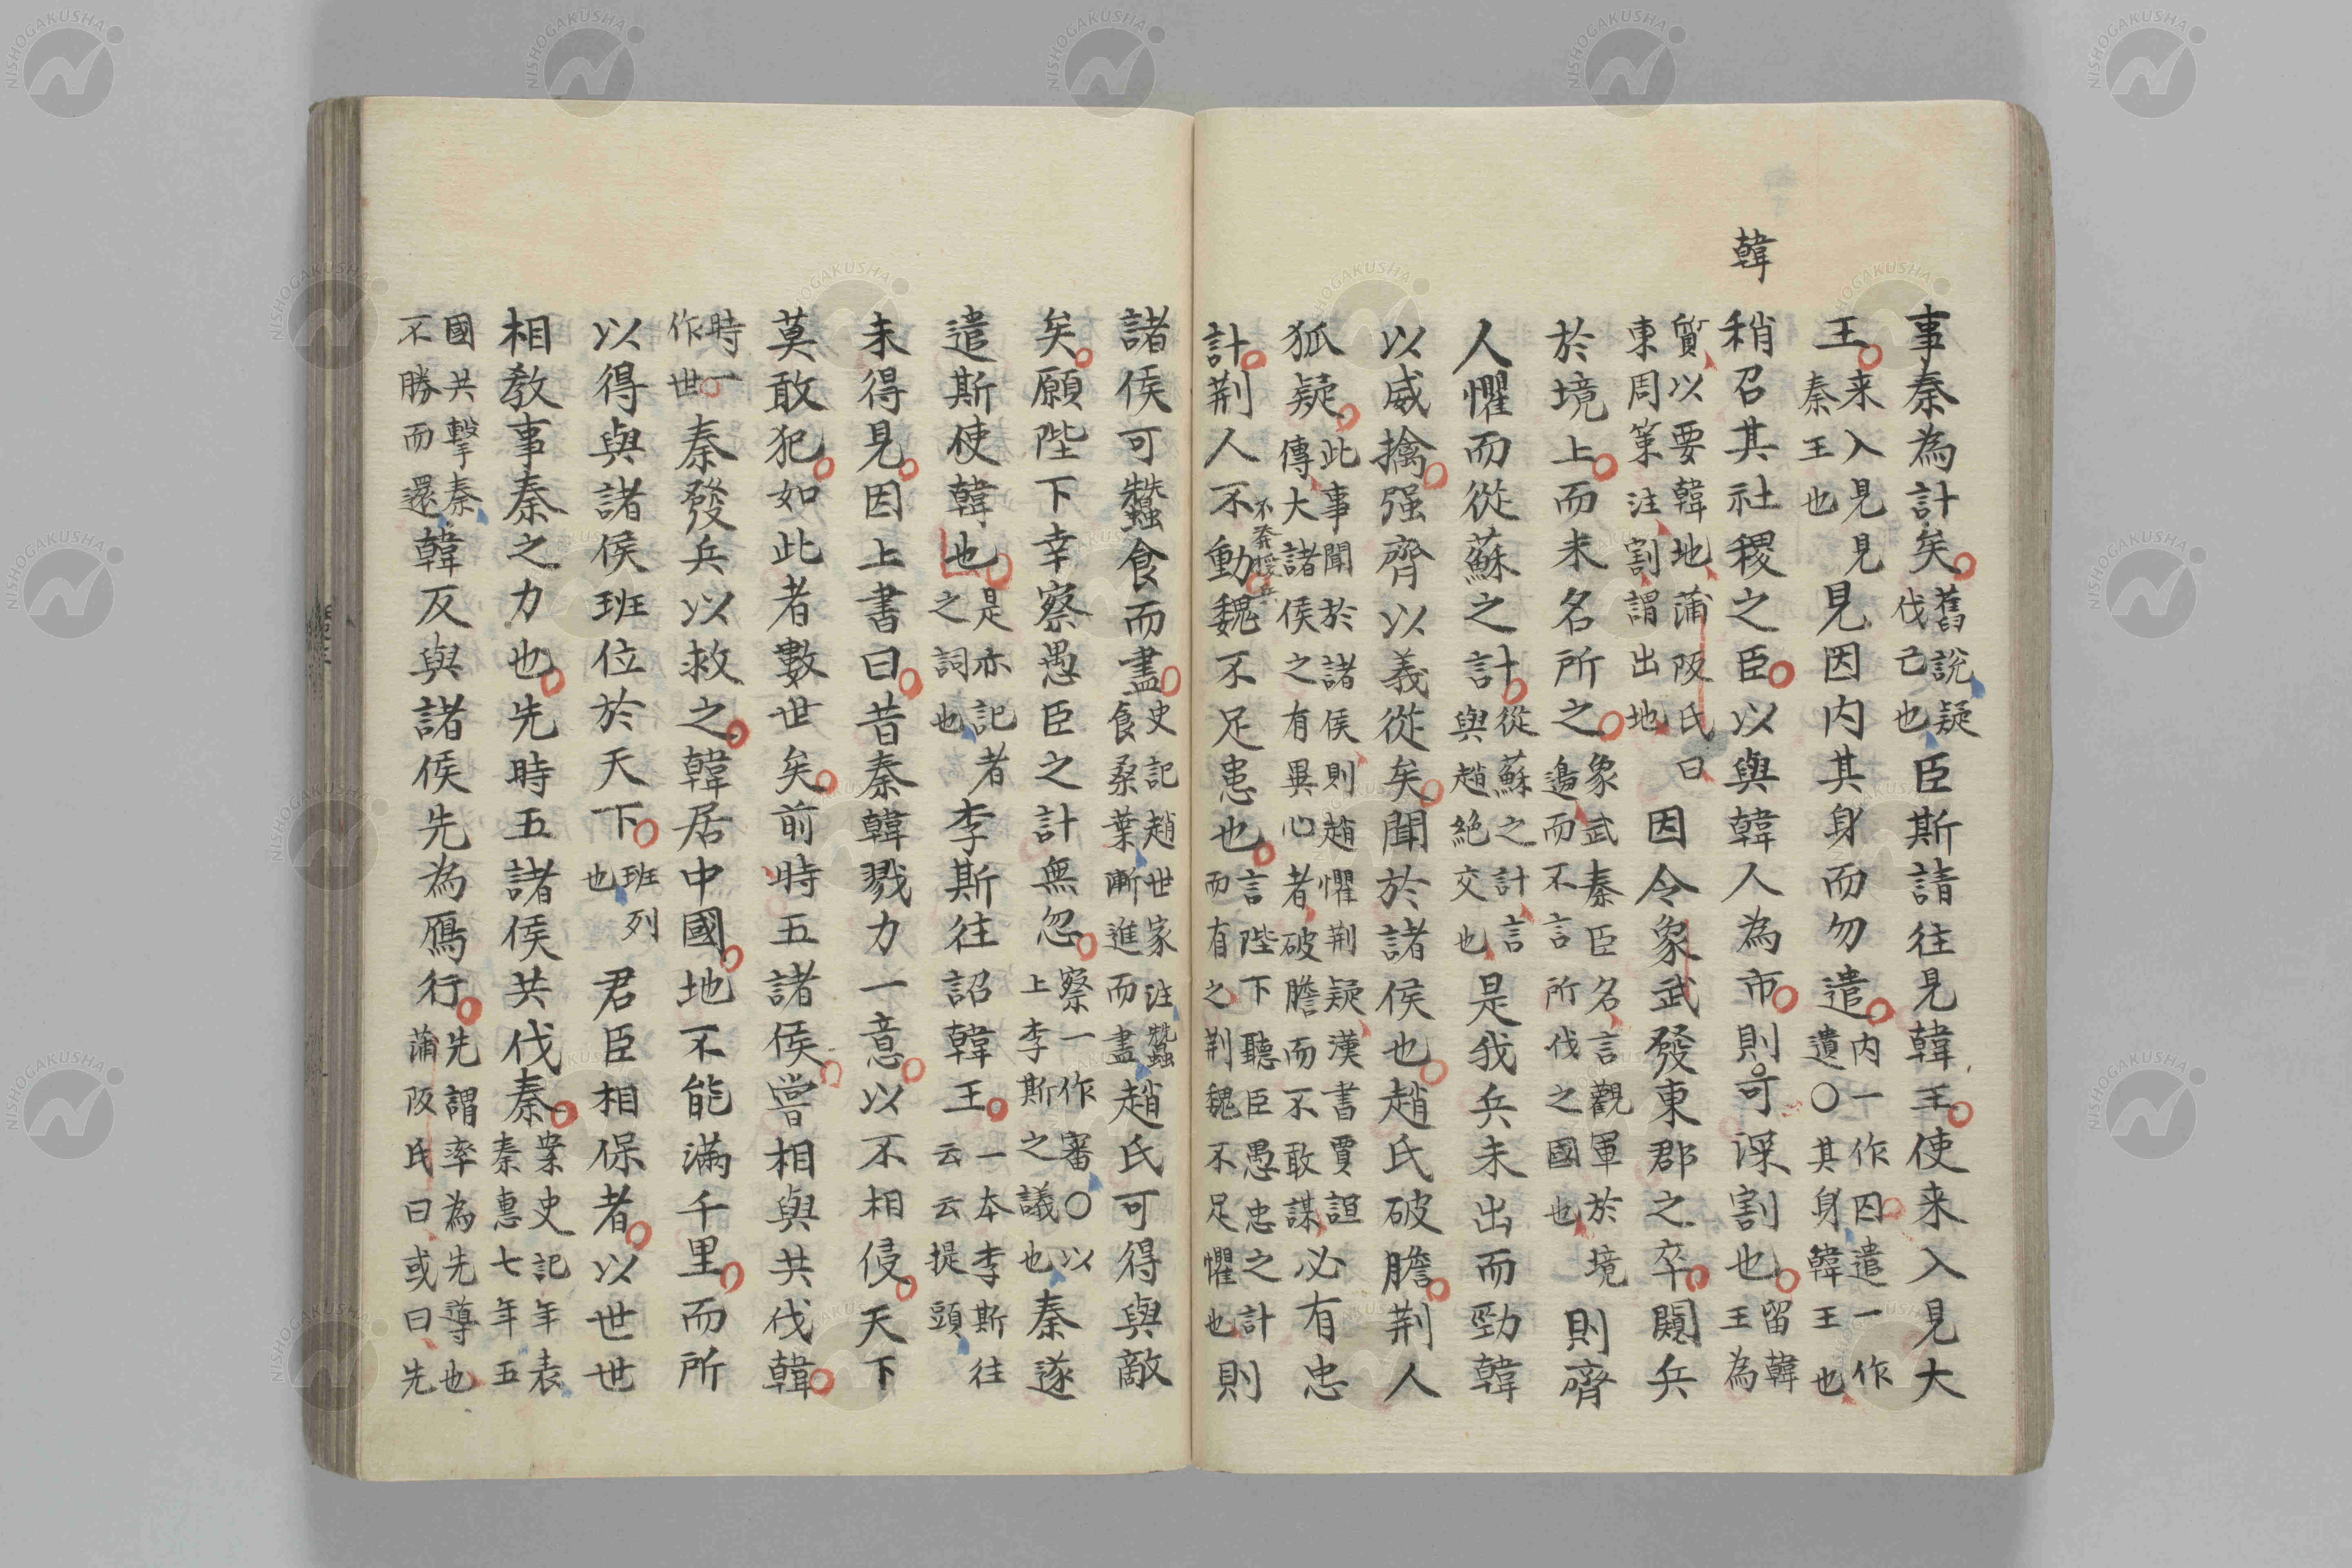 韓
事秦為計矣舊說疑伐己也臣斯請往見韓王使来入見大
王来入見見秦王也見因内其身而勿遣内一作囚遣一作遺〇其身韓王也
稍召其社稷之臣以與韓人為市則可深割也留韓王為
質以要韓地蒲阪氏曰東周策注割謂出地因令象武發東郡之卒闚兵
於境上而未名所之象武秦臣名言觀軍於境邉而不言所伐之國也則齊
人懼而從蘇之計從蘇之計言與趙絶交也是我兵未出而勁韓
以威擒强齊以義從矣聞於諸侯也趙氏破膽荆人
狐疑此事聞於諸侯則趙懼荆疑漢書賈誼傳大諸侯之有異心者破膽而不敢謀必有忠
計荆人不動魏不足患也言陛下聽臣愚忠之計而有之荆魏不足懼也則
諸侯可蠶食而盡史記趙世家注蠶食桑葉漸進而盡趙氏可得與敵
矣願陛下幸察愚臣之計無忽察一作審〇以上李斯之議也秦遂
遣斯使韓也是亦記者之詞也李斯往詔韓王一本李斯往云云提頭
未得見因上書曰昔秦韓戮力一意以不相侵天下
莫敢犯如此者數世矣前時五諸侯嘗相與共伐韓
時一作世秦發兵以救之韓居中國地不能滿千里而所
以得與諸侯班位於天下班列也君臣相保者以世世
相教事秦之力也先時五諸侯共伐秦案史記年表秦惠七年五
國共擊秦不勝而還韓反與諸侯先為鴈行先謂率為先導也蒲阪氏曰或曰先